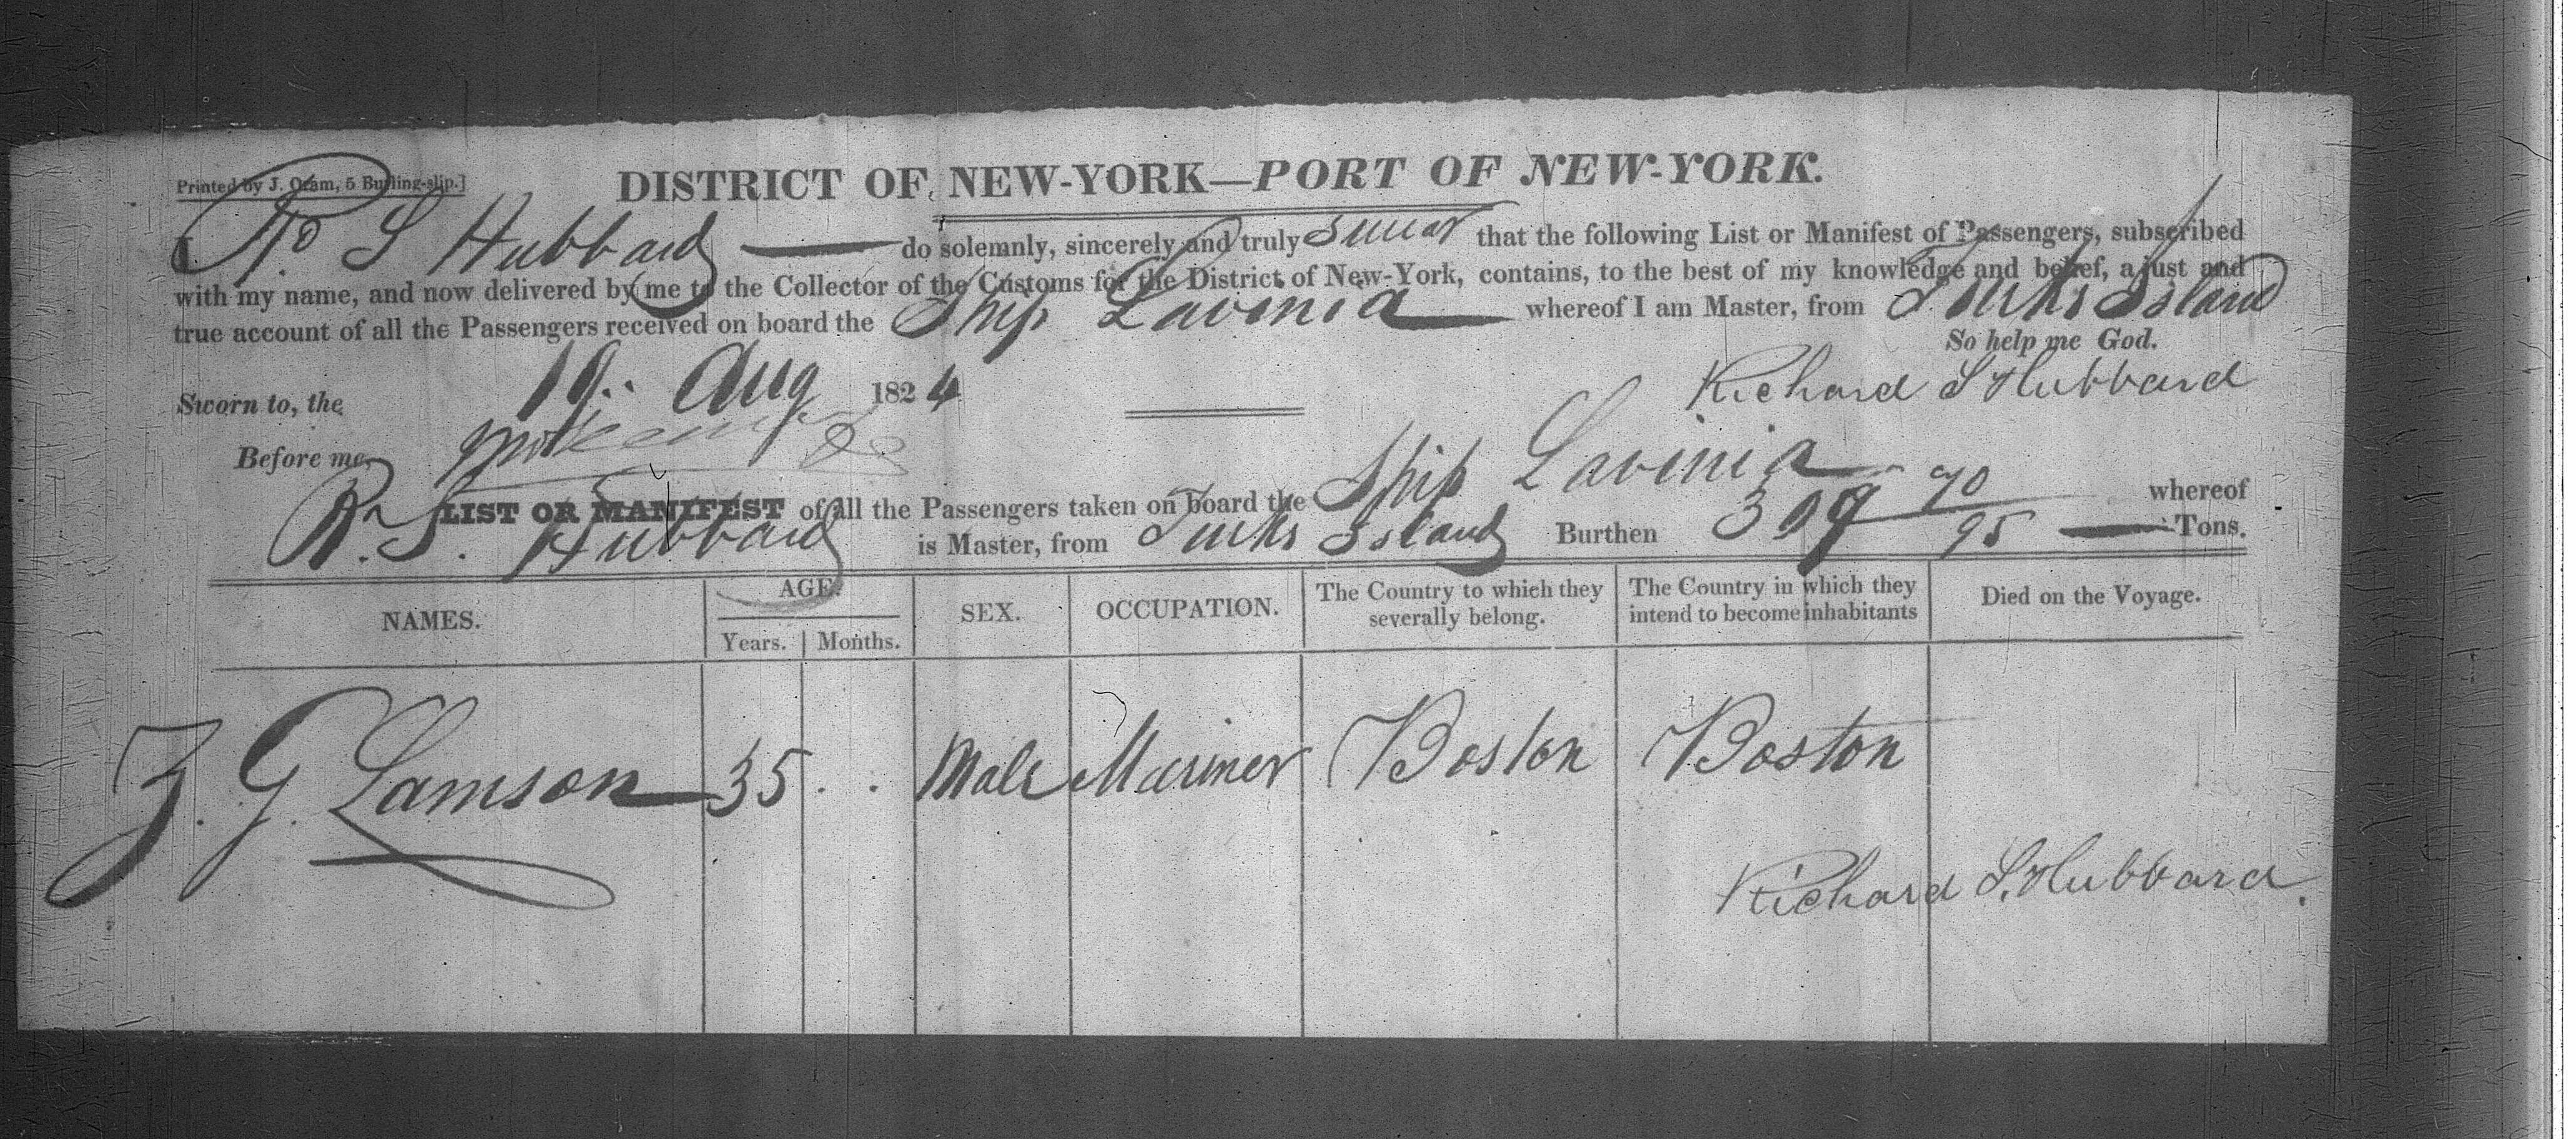 DISTRICT OF NEW-YORK—PORT OF NEW-YORK.
Printed by J. Oram, 5 Burling-slip.]
I, Rd S Hubbard do solemnly, sincerely and truly swear that the following List or Manifest of Passengers, subscribed
with my name, and now delivered by me to the Collector of the Customs for the District of New-York, contains, to the best of my knowledge and belief, a just and
true account of all the Passengers received on board the Ship Lavinia whereof I am Master, from Turks Island
So help me God.
Sworn to, the 10 Aug 1824
Richard S Hubbard
Before me,
LIST OR MANIFEST of all the Passengers taken on board the Ship Lavinia whereof
R. S. Hubbard is Master, from Turks Island Burthen 309 70/95 Tons.
NAMES. AGE. Years. Months. SEX. OCCUPATION. The Country to which they severally belong. The Country in which they intend to become inhabitants Died on the Voyage.
Z. G. Lamson 35 Male Mariner Boston Boston
Richard S. Hubbard.